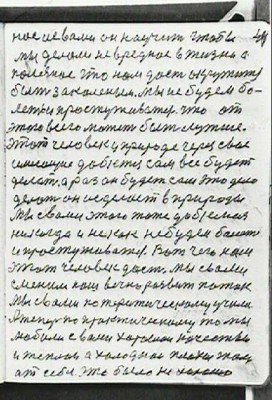 ное с вами он научит чтобы
мы делали не вредное в жизни а
полезное что нам даст окружит
быть закаленым. Мы не будем бо-
леть и простуживатся. что от
этого всего может быть лучше.
Этот человек у природе через свое
сам все будет
делат, а раз он будет сам это дело
делат он сделает в природы
Мы с вами этого тоже добъемся
никогда и некак не будем болеть
и простуживатся. Вот чего нам
этот человек даст. Мы с вами
сменим наш вечно развит поток
Мы с вами по теоритическому учили
А теперь по практическому то мы
любили с вами хорошое качество
и теплое а холодное плохое гнали
от себя. Это было не хорошо